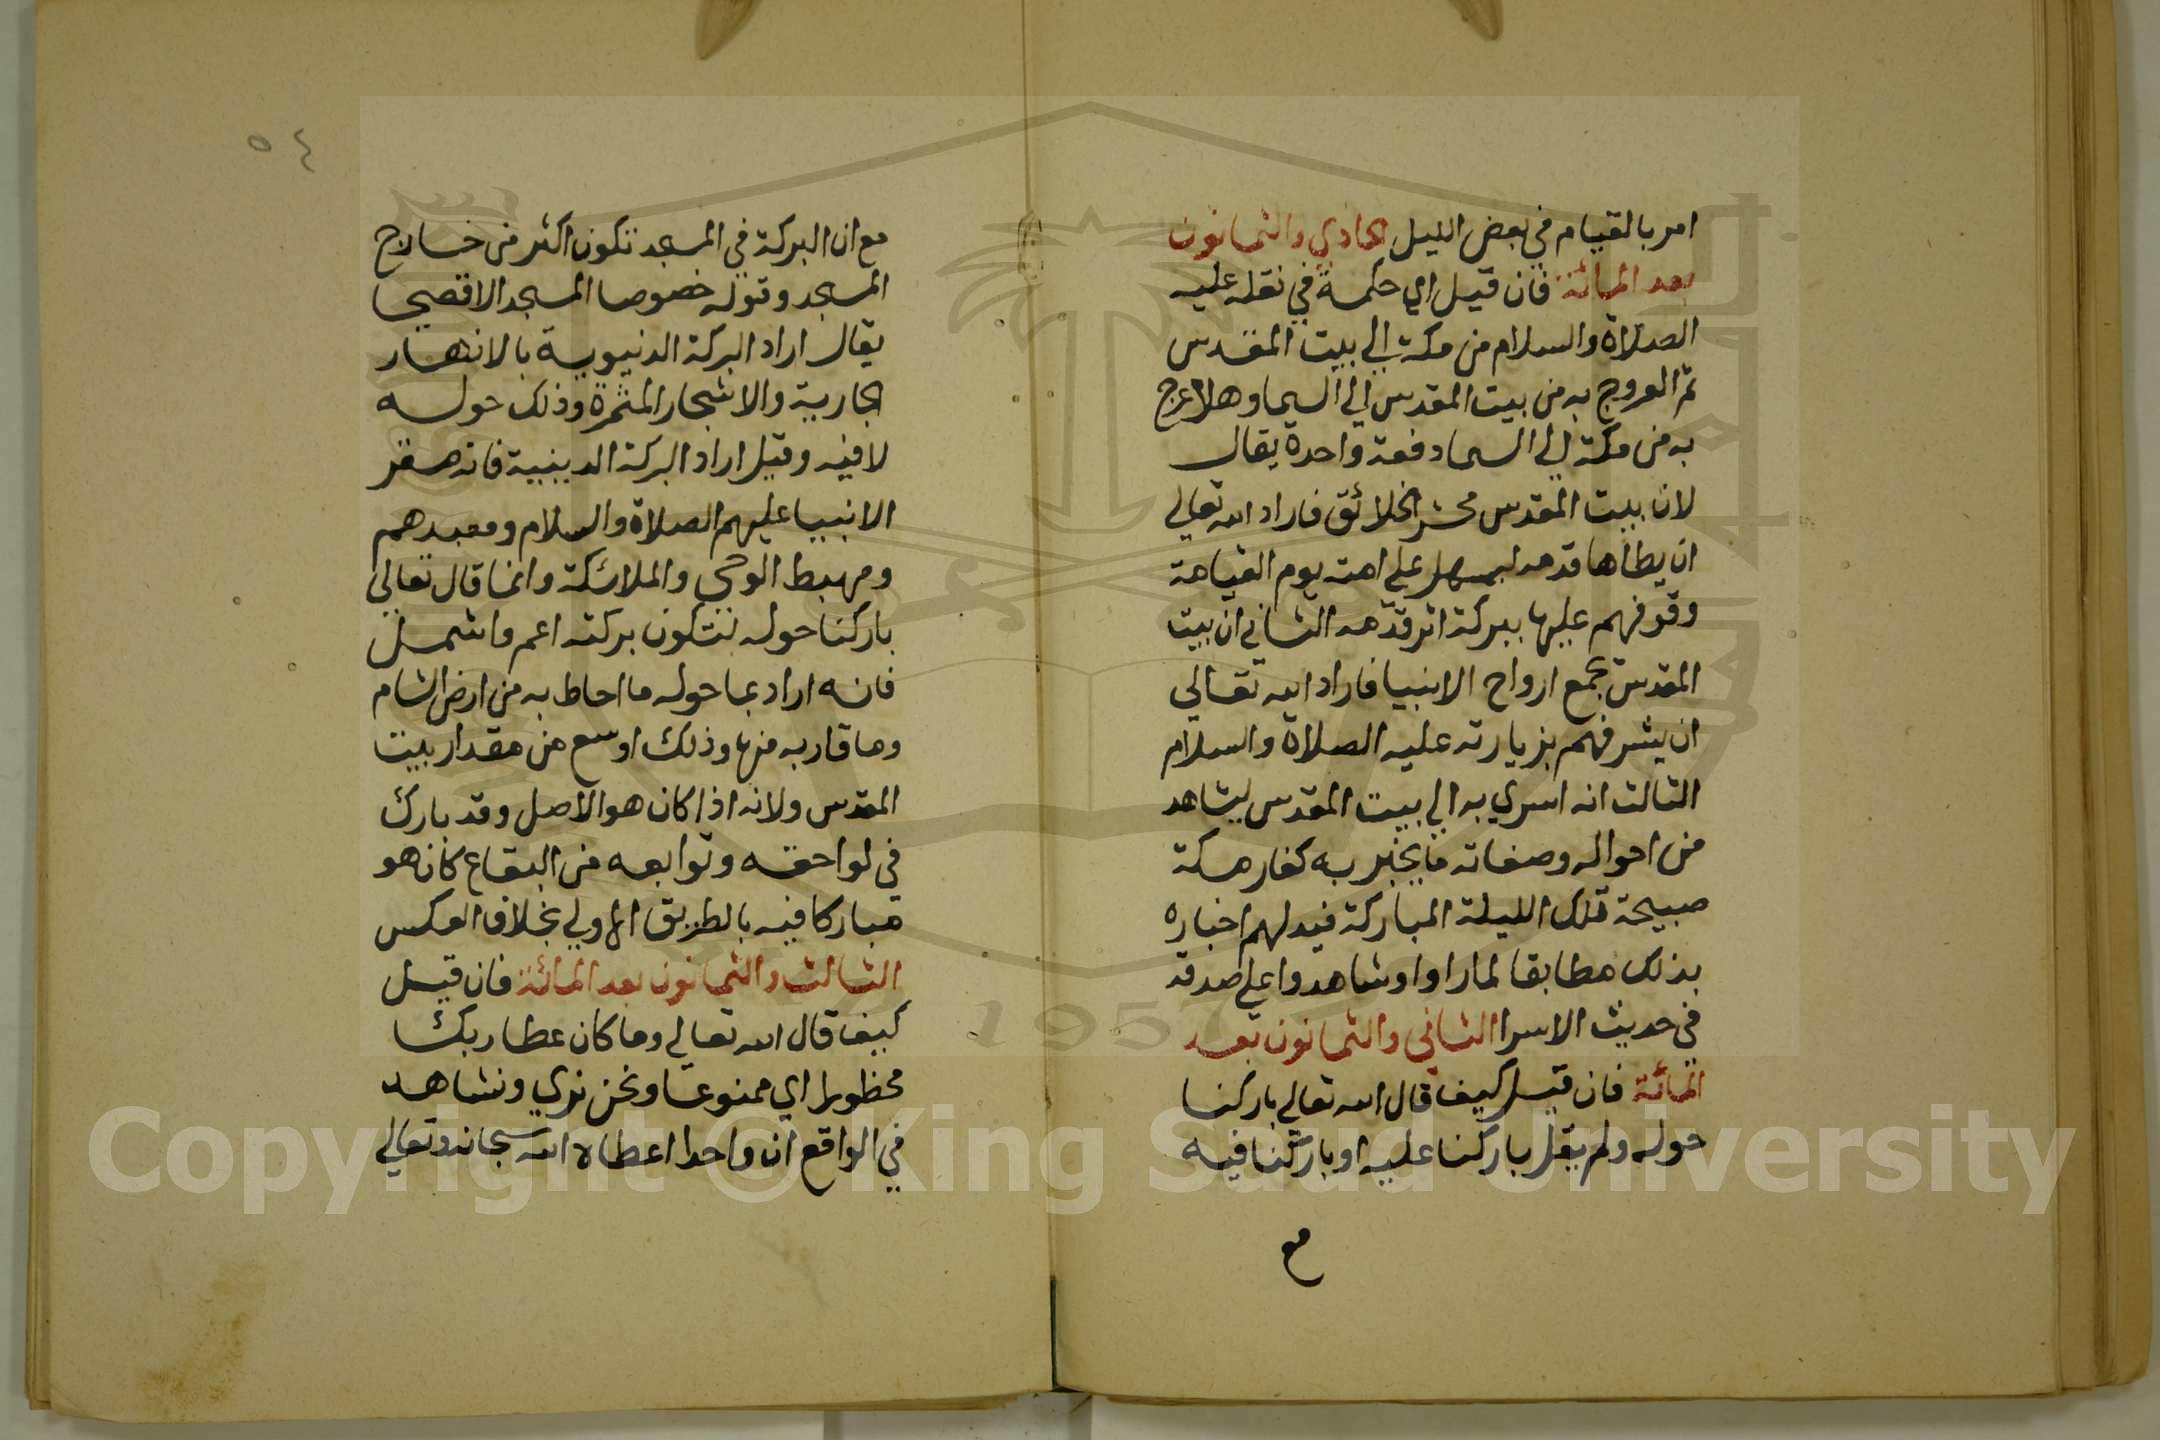 امر بالقيام في بعض الليل الحادي والثمانون
بعد المائة فان قيل اي حكمة في نقله عليه
الصلاة والسلام من مكة الي بيت المقدس
ثم العروج به من بيت المقدس الي السما وهلا عرج
به من مكة الي السما دفعة واحدة يقال
لان بيت المقدس محشر الخلائق فاراد الله تعالي
ان يطاها قدمه ليسهل علي امته يوم القيامة
وقوفهم عليها ببركة اثر قدمه الثاني ان بيت
المقدس مجمع ارواح الانبيا فاراد الله تعالي
ان يشرفهم بزيارته عليه الصلاة والسلام
الثالث انه اسري به الي بيت المقدس ليشاهد
من احواله وصفاته ما يخبر به كفار مكة
صبيحة تلك الليلة المباركة فيدلهم اخباره
بذلك مطابقا لما راوا وشاهدوا علي صدقه
في حديث الاسرا الثاني والثمانون بعد
المائة فان قيل كيف قال الله تعالي باركنا
حوله ولم يقل باركنا عليه او باركنا فيه
مع
٥٤
مع ان البركة في المسجد تكون اكثر من خارج
المسجد وقوله خصوصا المسجد الاقصي
يقال اراد البركة الدنيوية بالانهار
الجارية والاشجار المثمرة وذلك حوله
لا فيه وقيل اراد البركة الدينية فانه مقر
الانبيا عليهم الصلاة والسلام ومعبدهم
ومهبط الوحي والملائكة وانما قال تعالي
باركنا حوله لتكون بركته اعم واشمل
فانه اراد بما حوله ما احاط به من ارض الشام
وما قاربه منها وذلك اوسع من مقدار بيت
المقدس ولانه اذا كان هو الاصل وقد بارك
في لواحقه وتوابعه من البقاع كان هو
مباركا فيه بالطريق الاولي بخلاف العكس
الثالث والثمانون بعد المائة فان قيل
كيف قال الله تعالي وما كان عطا ربك
محظورا اي ممنوعا ونحن نري ونشاهد
في الواقع ان واحدا اعطاه الله سبحانه وتعالي
1957
Copyright © King Saud University